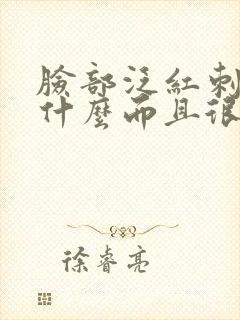 臉部泛紅刺
什麼而且很
徐睿亮